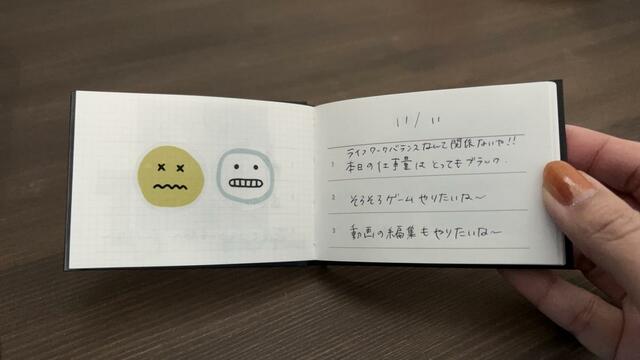 11/11
1 ライフワークバランスなんて関係ないや!!
本日の仕事量はとってもブラック.
2 そろそろゲームやりたいな〜
3 動画の編集もやりたいな〜